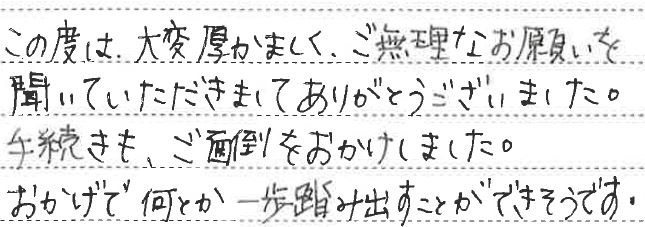 この度は、大変厚かましく、ご無理なお願いを
聞いていただきましてありがとうございました。
手続きも、ご面倒をおかけしました。
おかげで何とか一歩踏み出すことができそうです。